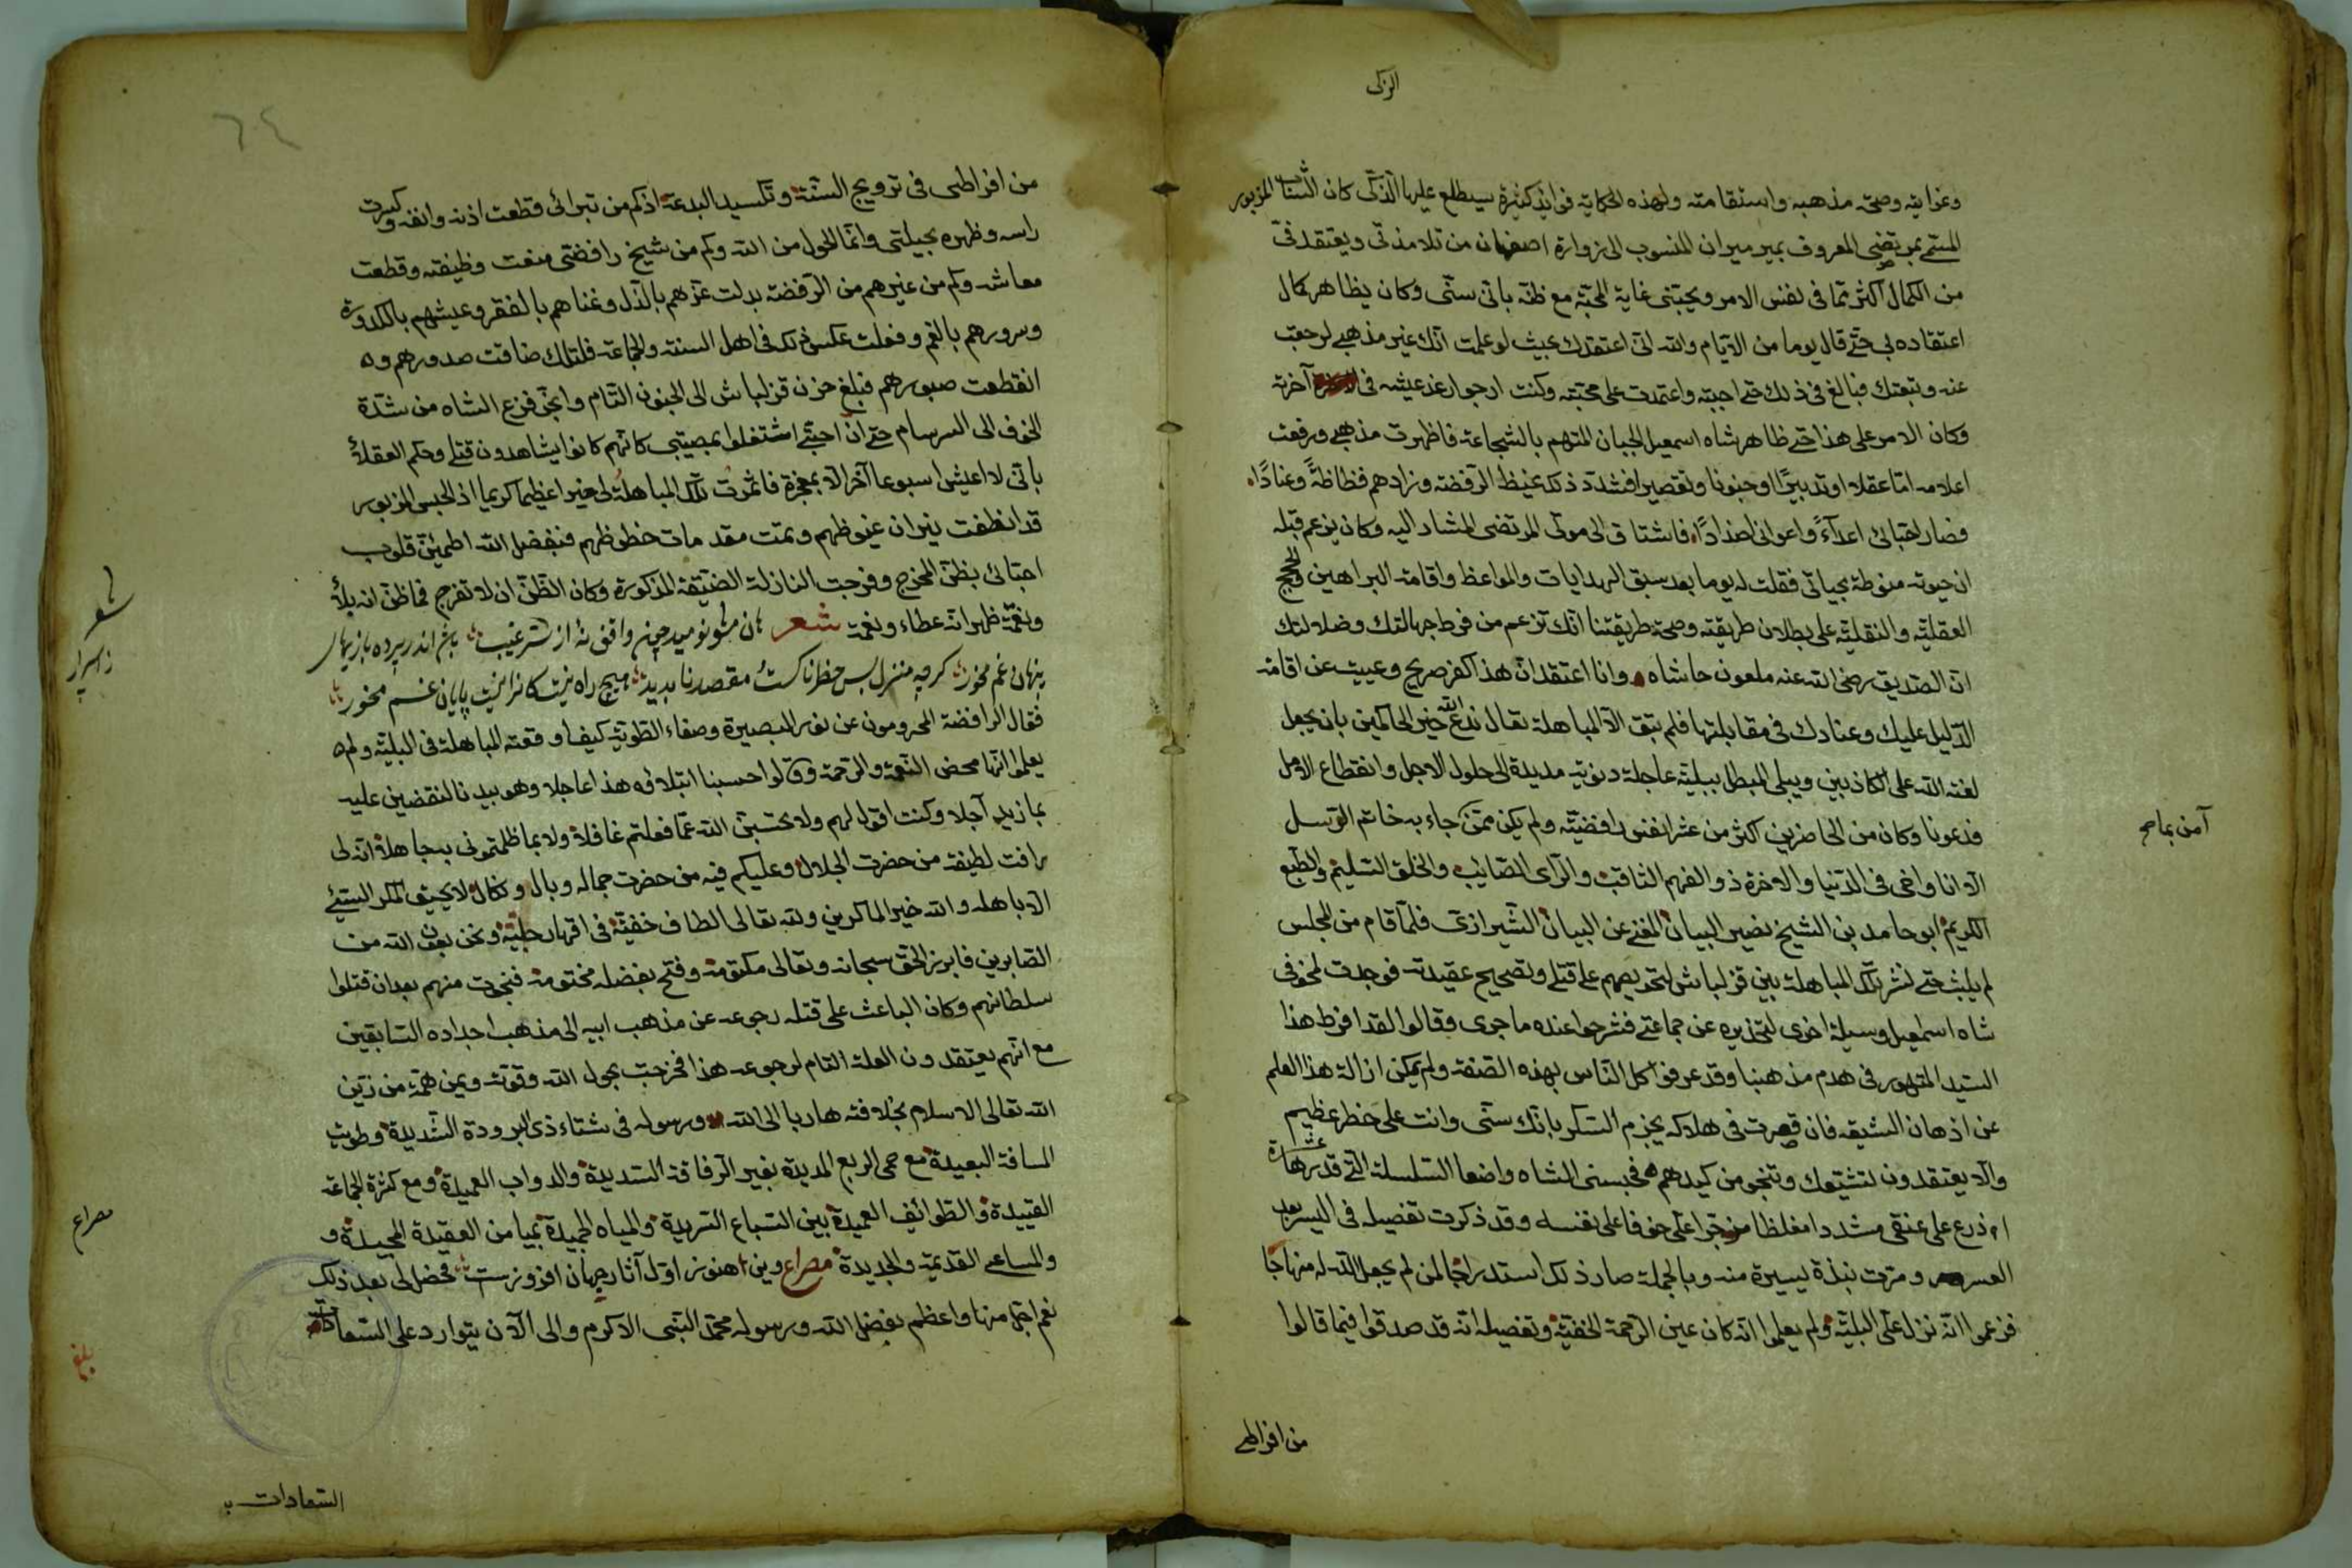 الزكى
وغرابته وصحة مذهبه واستقامته ولهذه الحكاية فوائد كثيرة سيطلع عليها الذكى كان الشاب المزبور
المسمى بمرتضى المعروف بمير ميران المنسوب الى زوارة اصفهان من تلامذتى ويعتقد فىّ
من الكمال اكثر مما فى نفس الامر ويحبنى غاية المحبة مع ظنه بانى سنى وكان يظاهر كمال
اعتقاده بى حتى قال يوما من الايام والله انى اعتقدك بحيث لو علمت انك غير مذهبى لرجعت
عنه وتبعتك فبالغ فى ذلك حتى اجبته واعتمدت على محبته وكنت ارجو ارغد عيشه فى آخرته
وكان الامر على هذا حتى ظاهر شاه اسمعيل الجبان المتهم بالشجاعة فاظهرت مذهبى ورفعت
اعلامه اما عقلا وتدبيرًا او جنونا وتقصيرا فشدد ذلك غيظ الرفضة وزادهم فظاظةً وعنادًا
فصار احبائى اعداءً واعوانى اضدادًا فاشتاق الى موتى المرتضى المشار اليه وكان يزعم قبله
ان حيوته منوطة بحياتى فقلت له يوما بعد سبق الهدايات والمواعظ واقامة البراهين والحجج
العقلية والنقلية على بطلان طريقته وصحة طريقتنا انك تزعم من فرط جهالتك وضلالتك
ان الصديق رضى الله عنه ملعون حاشاه وانا اعتقد ان هذا كفر صريح وعييت عن اقامة
الدليل عليك وعنادك فى مقابلتها فلم تبق الا المباهلة تعال ندع الله خير الحاكمين بان يجعل
لعنة الله على الكاذبين ويبلى المبطل ببلية عاجلة دنوية مديدة الى حلول الاجل وانقطاع الامل
فدعونا وكان من الحاضرين اكثر من عشر انفس رافضية ولم يكن ممن جاء به خاتم الرسل
آمن بما صح
الا انا واخى فى الدنيا والاخرة ذو الفهم الثاقب والراى الصائب والخلق السليم والطبع
الكريم ابو حامد بن الشيخ نصير البيان المغنى عن البيان الشيرازى فلما قام من المجلس
لم يلبث حتى نشر تلك المباهلة بين قزلباش لتحريصهم على قتلى وتصحيح عقيدته فوجدت لخوفى
شاه اسمعيل وسيلة اخرى لتحذيره عن جماعتى فشرحوا عنده ما جرى وقالوا لقد افرط هذا
السيد المتهور فى هدم مذهبنا وقد عرفوا كل الناس بهذه الصفة ولم يمكن ازالة هذا العلم
عن اذهان الشيعة فان قصرت فى هلاكه يجزم السكر بانك سنى وانت على خطر عظيم
والا يعتقدون لتشيعك وتنجو من كيدهم فحبسنى الشاه واضعا السلسلة التى قدرها عشرة
اذرع على عنقى مشددا مغلظا خوفا على نفسه وقد ذكرت تفصيله فى اليسر بعد
العسر ومرت نبذة يسيرة منه وبالجملة صار ذلك استدراجا لمن لم يجعل الله له منهاجا
فزعموا انه نزل على البلية ولم يعلموا انه كان عين الرحمة الخفية وتفصيله انه قد صدقوا فيما قالوا
من افراطى
٦٤
من افراطى فى ترويج السنة وتكسيد البدعة اذ كم من تبرائى قطعت اذنه وانفه وكسرت
راسه وظهره بحيلتى وانما الحول من الله وكم من شيخ رافضى منعت وظيفته وقطعت
معاشه وكم من غيرهم من الرفضة بدلت عزهم بالذل وغناهم بالفقر وعيشهم بالكدورة
وسرورهم بالغم وفعلت عكس ذلك فى اهل السنة والجماعة فلتلك ضاقت صدورهم و
انقطعت صبورهم فبلغ حزن قزلباش الى الجنون التام وانجر فزع الشاه من شدة
الخوف الى السرسام حتى ان احبتى اشتغلوا بمصيبتى كانهم كانوا يشاهدون قتلى وحكم العقلاء
بانى لا اعيش اسبوعا آخر الا بمعجزة فاثمرت تلك المباهلة لى خيرا عظيما كريما اذ الحبس المزبور
قد انطفت نيران غيوظهم وتمت مقدمات حظوظهم فبفضل الله اطمئن قلوب
احبائى بظن المخرج وفرجت النازلة الضيقة المذكورة وكان الظن ان لا تفرج فما ظن انه بلاء
ونقمة ظهر انه عطاء ونعمة شعر هان مشو نوميد چون واقف نه از سر غيب باشد اندر پرده بازيهاى
شعر
ز اسرار
پنهان غم مخور گرچه منزل بس خطرناكست مقصد ناپديد هيچ راه نيست كانرا نيست پايان غم مخور
فقال الرافضة المحرومون عن نور البصيرة وصفاء الطوية كيف اوقعته المباهلة فى البلية ولم
يعلموا انها محض النعمة والرحمة وقالوا حسبنا ابتلاؤه هذا عاجلا وهو بيدنا لنقضين عليه
بما زيد آجلا وكنت اقول لهم ولا تحسبن الله عما فعلتم غافلا ولا بما ظلمتمونى به جاهلا انه لى
رافت لطيفة من حضرت الجلال وعليكم فيه من حضرت جماله وبال ونكال ولا يحيق المكر السيئ
الا باهله والله خير الماكرين ولله تعالى الطاف خفية فى اقهار جلية ونحن بعون الله من
الصابرين فابرز الحق سبحانه وتعالى مكتومة وفتح بفضله مختومة فنجوت منهم بعد ان قتلوا
سلطانهم وكان الباعث على قتله رجوعه عن مذهب ابيه الى مذهب اجداده السابقين
مع انهم يعتقدون العلة التام لرجوعه هذا فخرجت بحول الله وقوته ويمن همة من زين
الله تعالى الاسلام بخلافته هاربا الى الله ورسوله فى شتاء ذى البرودة الشديدة وطويت
المسافة البعيدة مع حمى الربع المديدة بغير الرفاقة السديدة والدواب العميدة ومع كثرة الجماعة
القييدة والطوائف العميدة بين السباع الشريدة والمياه الجميدة بميامن العقيدة المجيدة و
والمساعى القديمة والجديدة مصراع وين هنوز اول آثار جهان افروزست فحصل لى بعد ذلك
مصراع
نعم اجل منها واعظم بفضل الله ورسوله محمد النبى الاكرم والى الآن يتوارد على السعادات
بلغ
السعادات